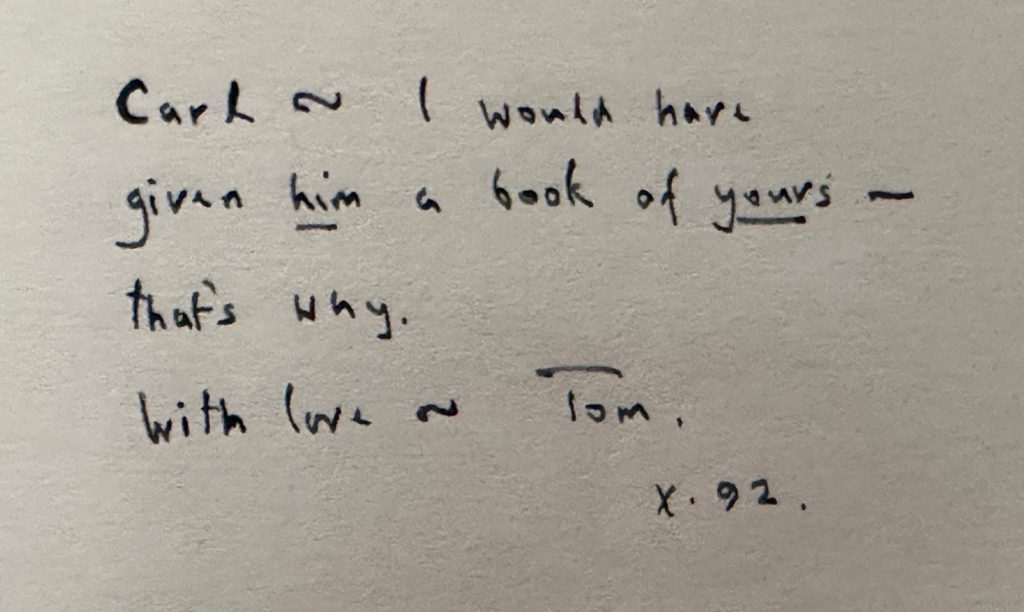 Carl ~ I would have
given him a book of yours —
that's why.
With love ~ Tom.
X. 92.